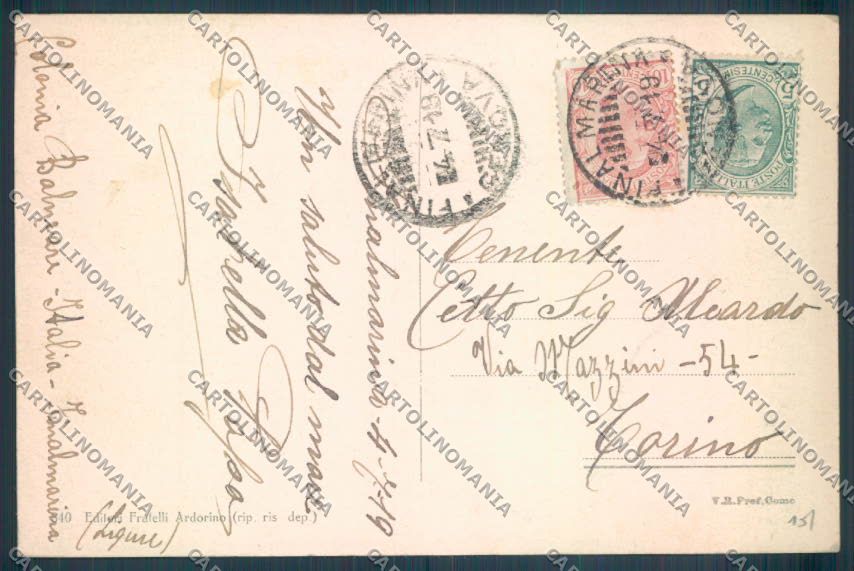 Tenente
Cetto Sig Alcardo
Via Mazzini - 54 -
Torino
Finalmarina 4-7-19
Un saluto dal mare
Isabella
Colonia Balneare - Italia - Finalmarina
(Ligure)
340 Editori Fratelli Ardorino (rip. ris dep.)
V.R.Pref.Como
15/
FINALMARINA
GENOVA
4.7.19
POSTE ITALIANE
CENTESIMI
5
10
CARTOLINOMANIA